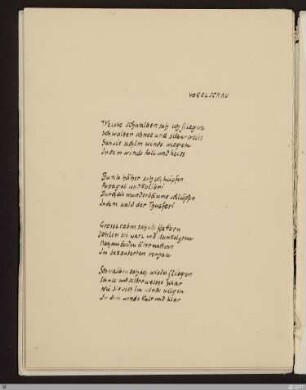 VOGELSCHAU
Weisse schwalben sah ich fliegen
Schwalben schnee und silberweiss
Sah sie sich im winde wiegen
In dem winde hell und heiss
Bunte häher sah ich hüpfen
Papagei und kolibri
Durch die wunderbäume schlüpfen
In dem wald der Tusferi
Grosse raben sah ich flattern
Dohlen schwarz und dunkelgrau
Im bezauberten gehau
Schwalben seh ich wieder fliegen
Schnee und silberweisse schar
Wie sie sich im winde wiegen
In dem winde kalt und klar